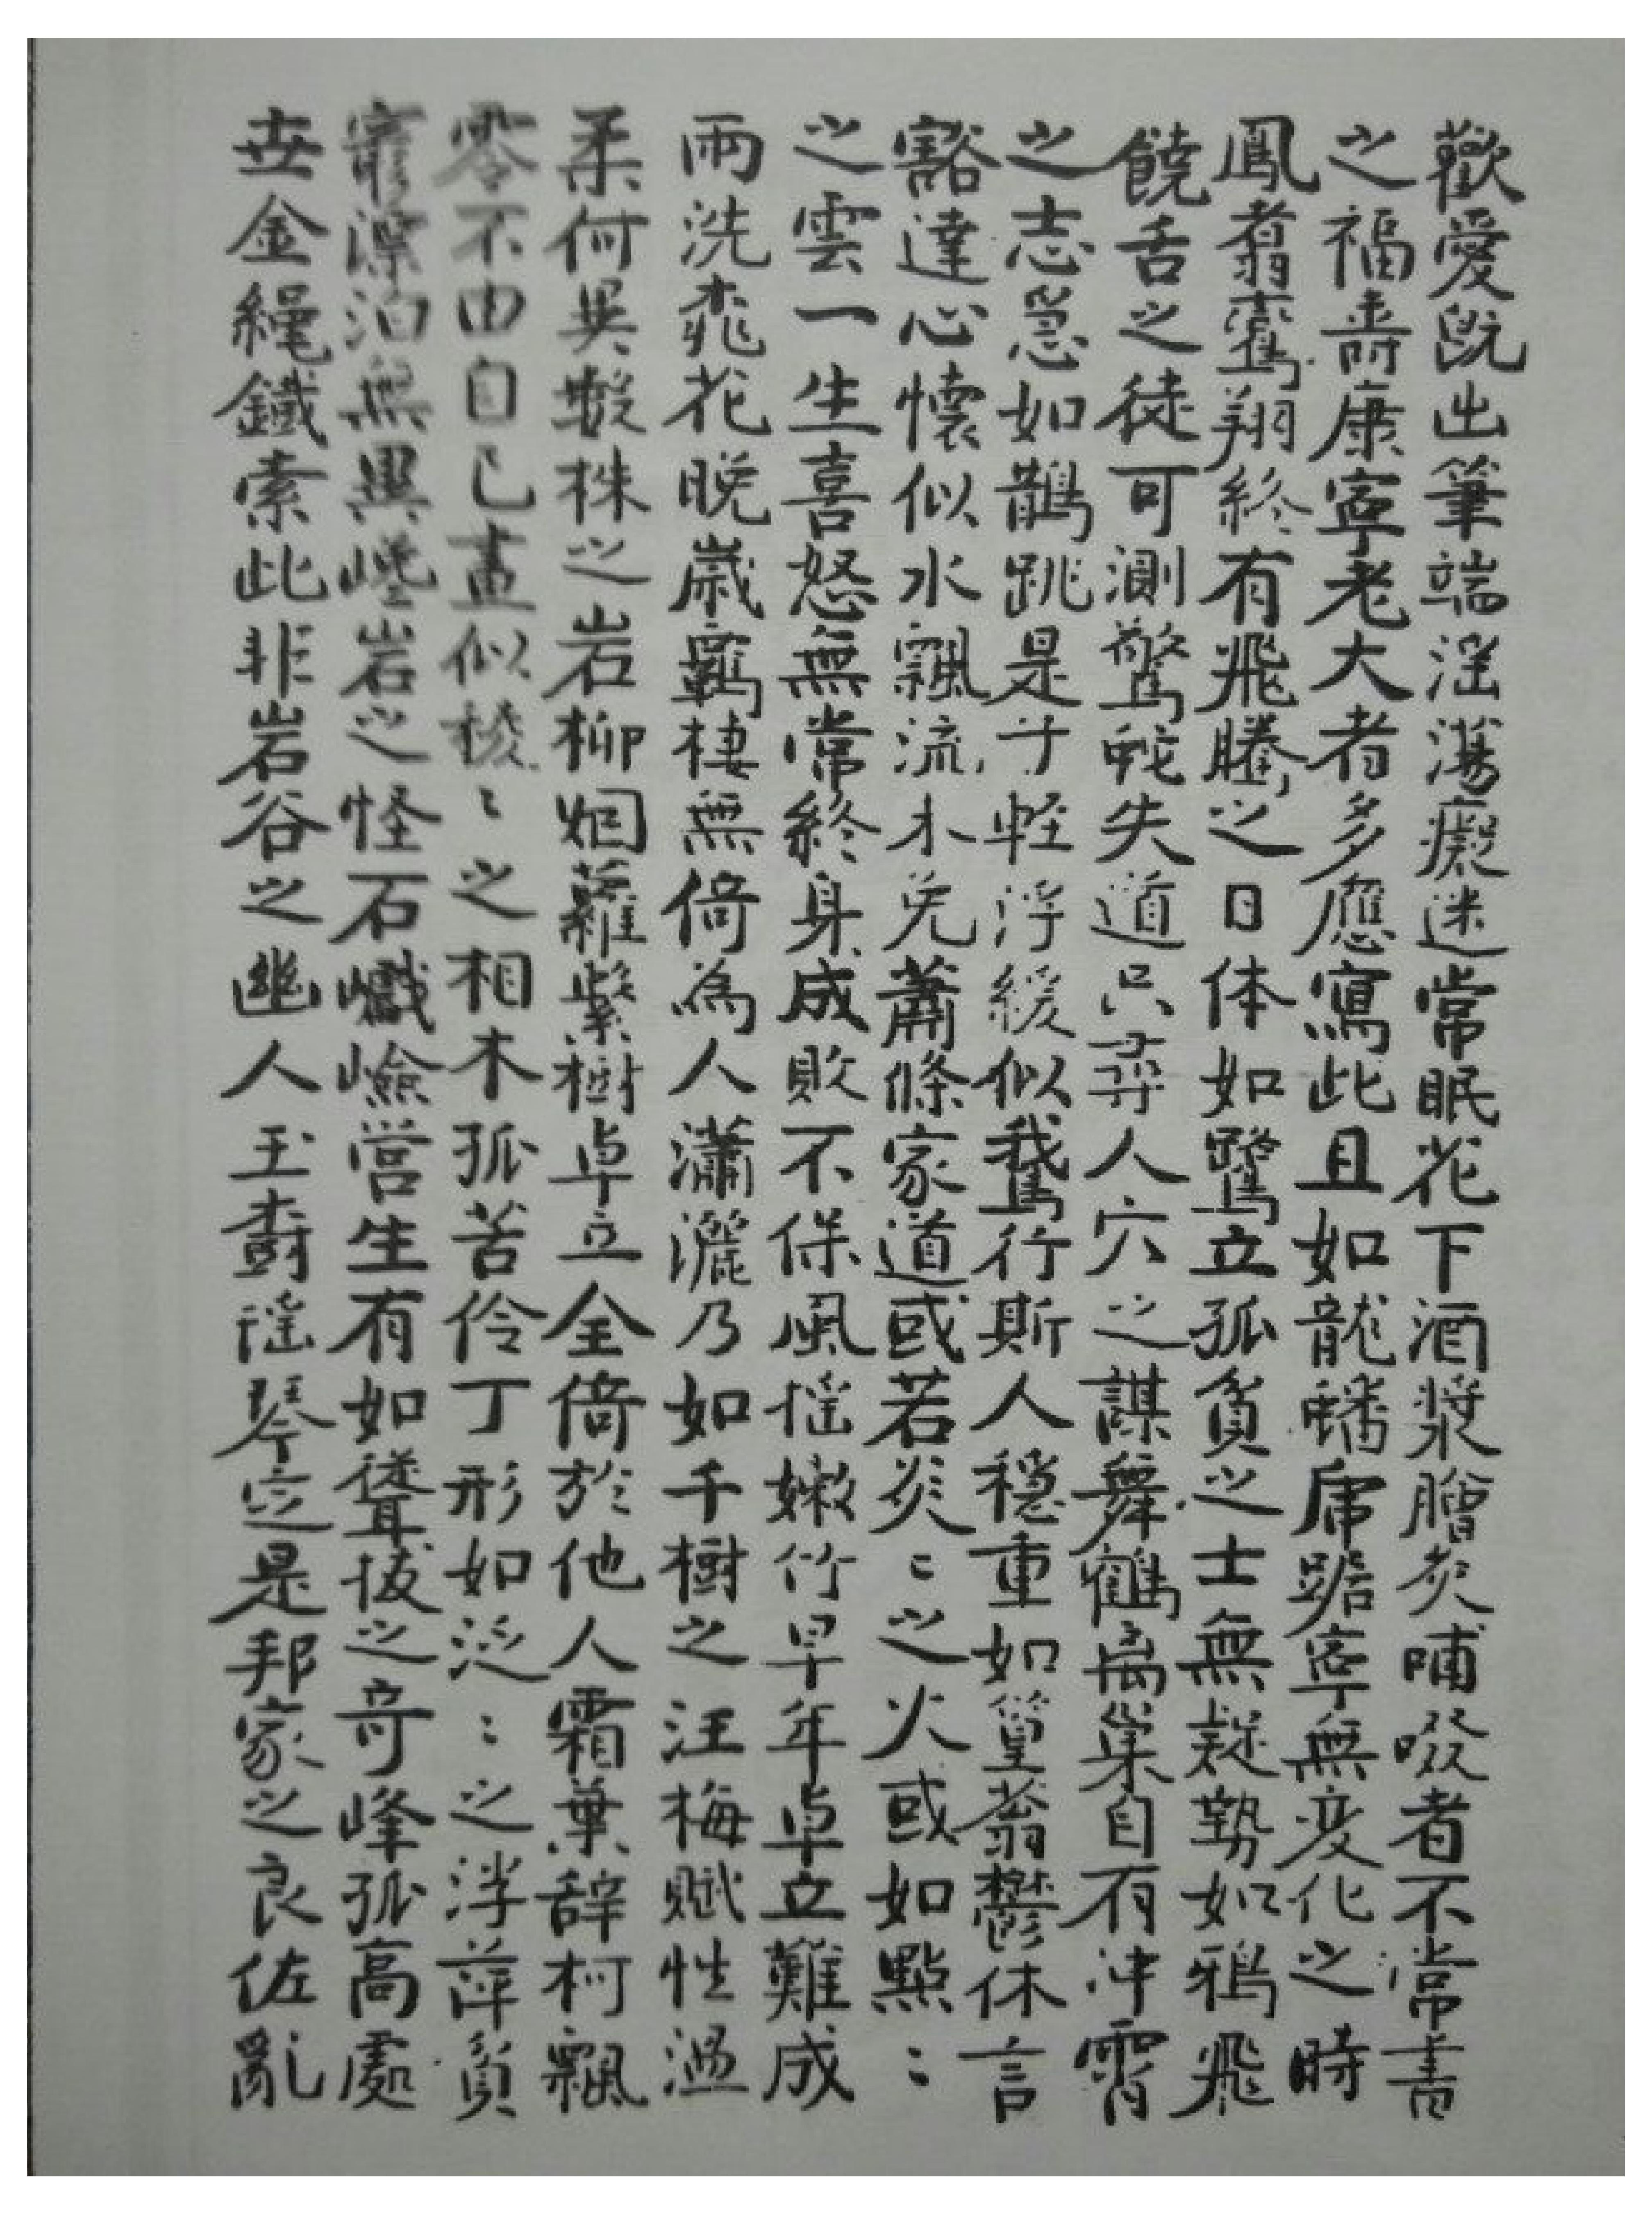 歡愛既出筆端淫蕩癡迷常眠花下酒漿膾炙哺啜者不常書
之福壽康寧老大者多應寫此且如龍蟠虎踞寧無変化之時
鳳翥鸞翔終有飛騰之日体如鷺立孤貧之士無疑勢如鴉飛
饒舌之徒可測驚蛇失道只弄人穴之謀舞鶴离巢自有沖霄
之志急如鵲跳是子輕浮緩似鵞行斯人穩重如篁蓊鬱休言
豁達心懷似水飄流木免蕭條家道或若炎〻之火或如點〻
之雲一生喜怒無常終身成敗不保風摇嫩竹早年卓立難成
雨洗桃花晚嵗羈棲無倚為人瀟灑乃如千樹之江梅賦性溫
柔何異数株之岩柳烟蘿縈樹卓立全倚於他人霜葉辞柯飄
零不由自己畫似棱〻之相木孤苦伶丁形如泛〻之浮萍貧
窮漂泊無異嵯岩之怪石巇嶮営生有如聳拔之奇峰孤高處
世金繩鐵索此非岩谷之幽人玉樹谣琴定是邦家之良佐亂